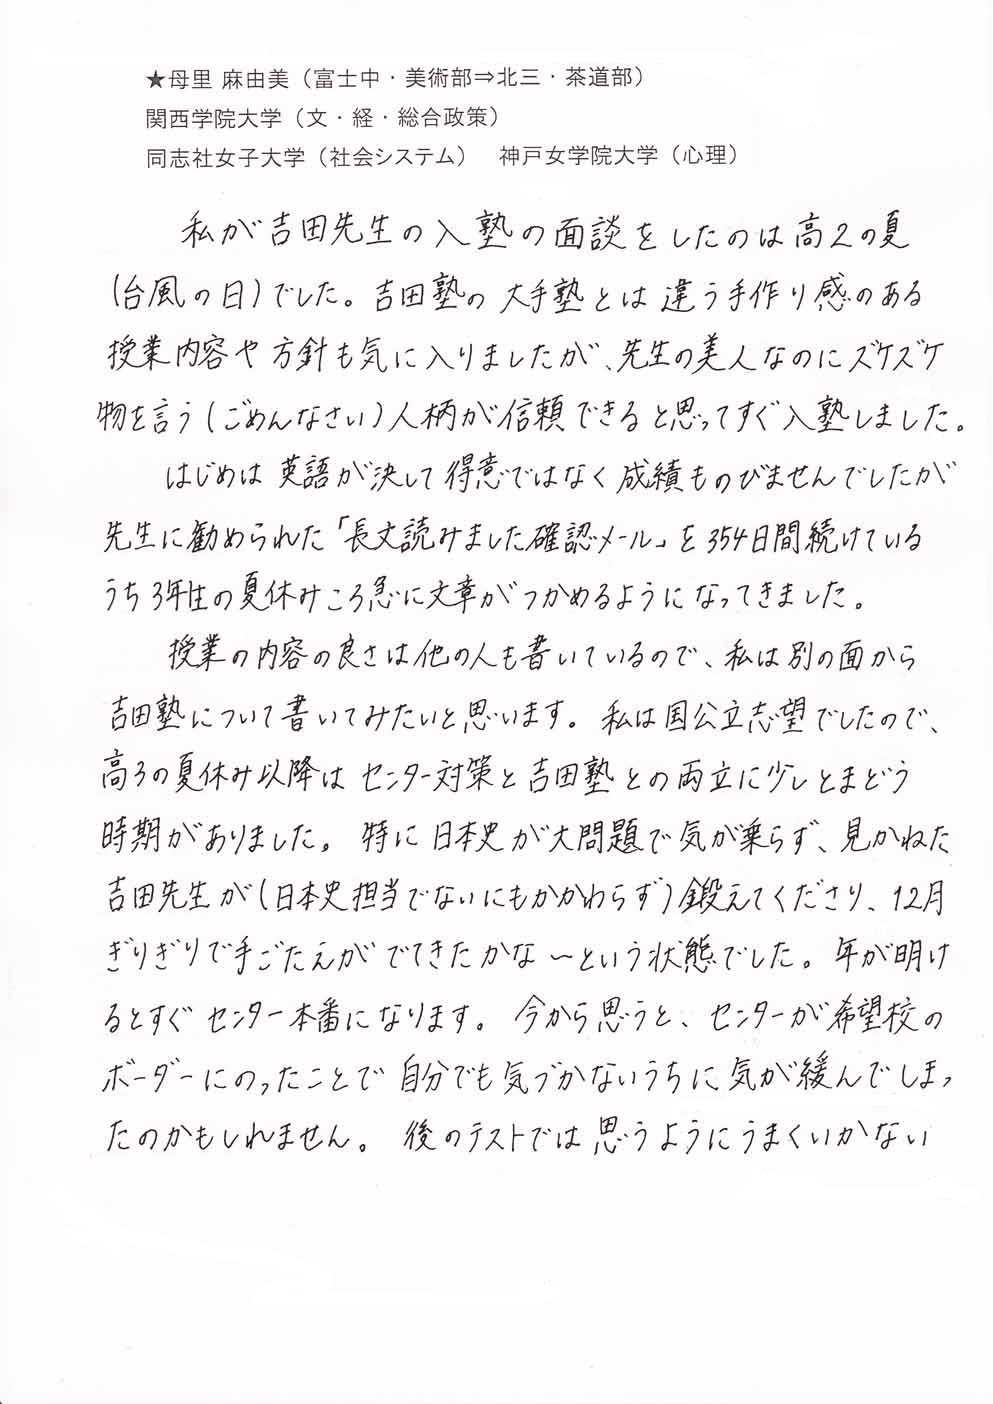 ★母里 麻由美（富士中・美術部⇒北三・茶道部）
関西学院大学（文・経・総合政策）
同志社女子大学（社会システム）　神戸女学院大学（心理）
私が吉田先生の入塾の面談をしたのは高2の夏
(台風の日)でした。吉田塾の大手塾とは違う手作り感のある
授業内容や方針も気に入りましたが、先生の美人なのにズケズケ
物を言う(ごめんなさい)人柄が信頼できると思ってすぐ入塾しました。
はじめは英語が決して得意ではなく成績ものびませんでしたが
先生に勧められた「長文読みました確認メール」を354日間続けている
うち3年生の夏休みころ急に文章がつかめるようになってきました。
授業の内容の良さは他の人も書いているので、私は別の面から
吉田塾について書いてみたいと思います。私は国公立志望でしたので、
高3の夏休み以降はセンター対策と吉田塾との両立に少しとまどう
時期がありました。特に日本史が大問題で気が乗らず、見かねた
吉田先生が(日本史担当でないにもかかわらず)鍛えてくださり、12月
ぎりぎりで手ごたえがでてきたかな〜という状態でした。年が明け
るとすぐセンター本番になります。今から思うと、センターが希望校の
ボーダーにのったことで自分でも気づかないうちに気が緩んでしまっ
たのかもしれません。後のテストでは思うようにうまくいかない